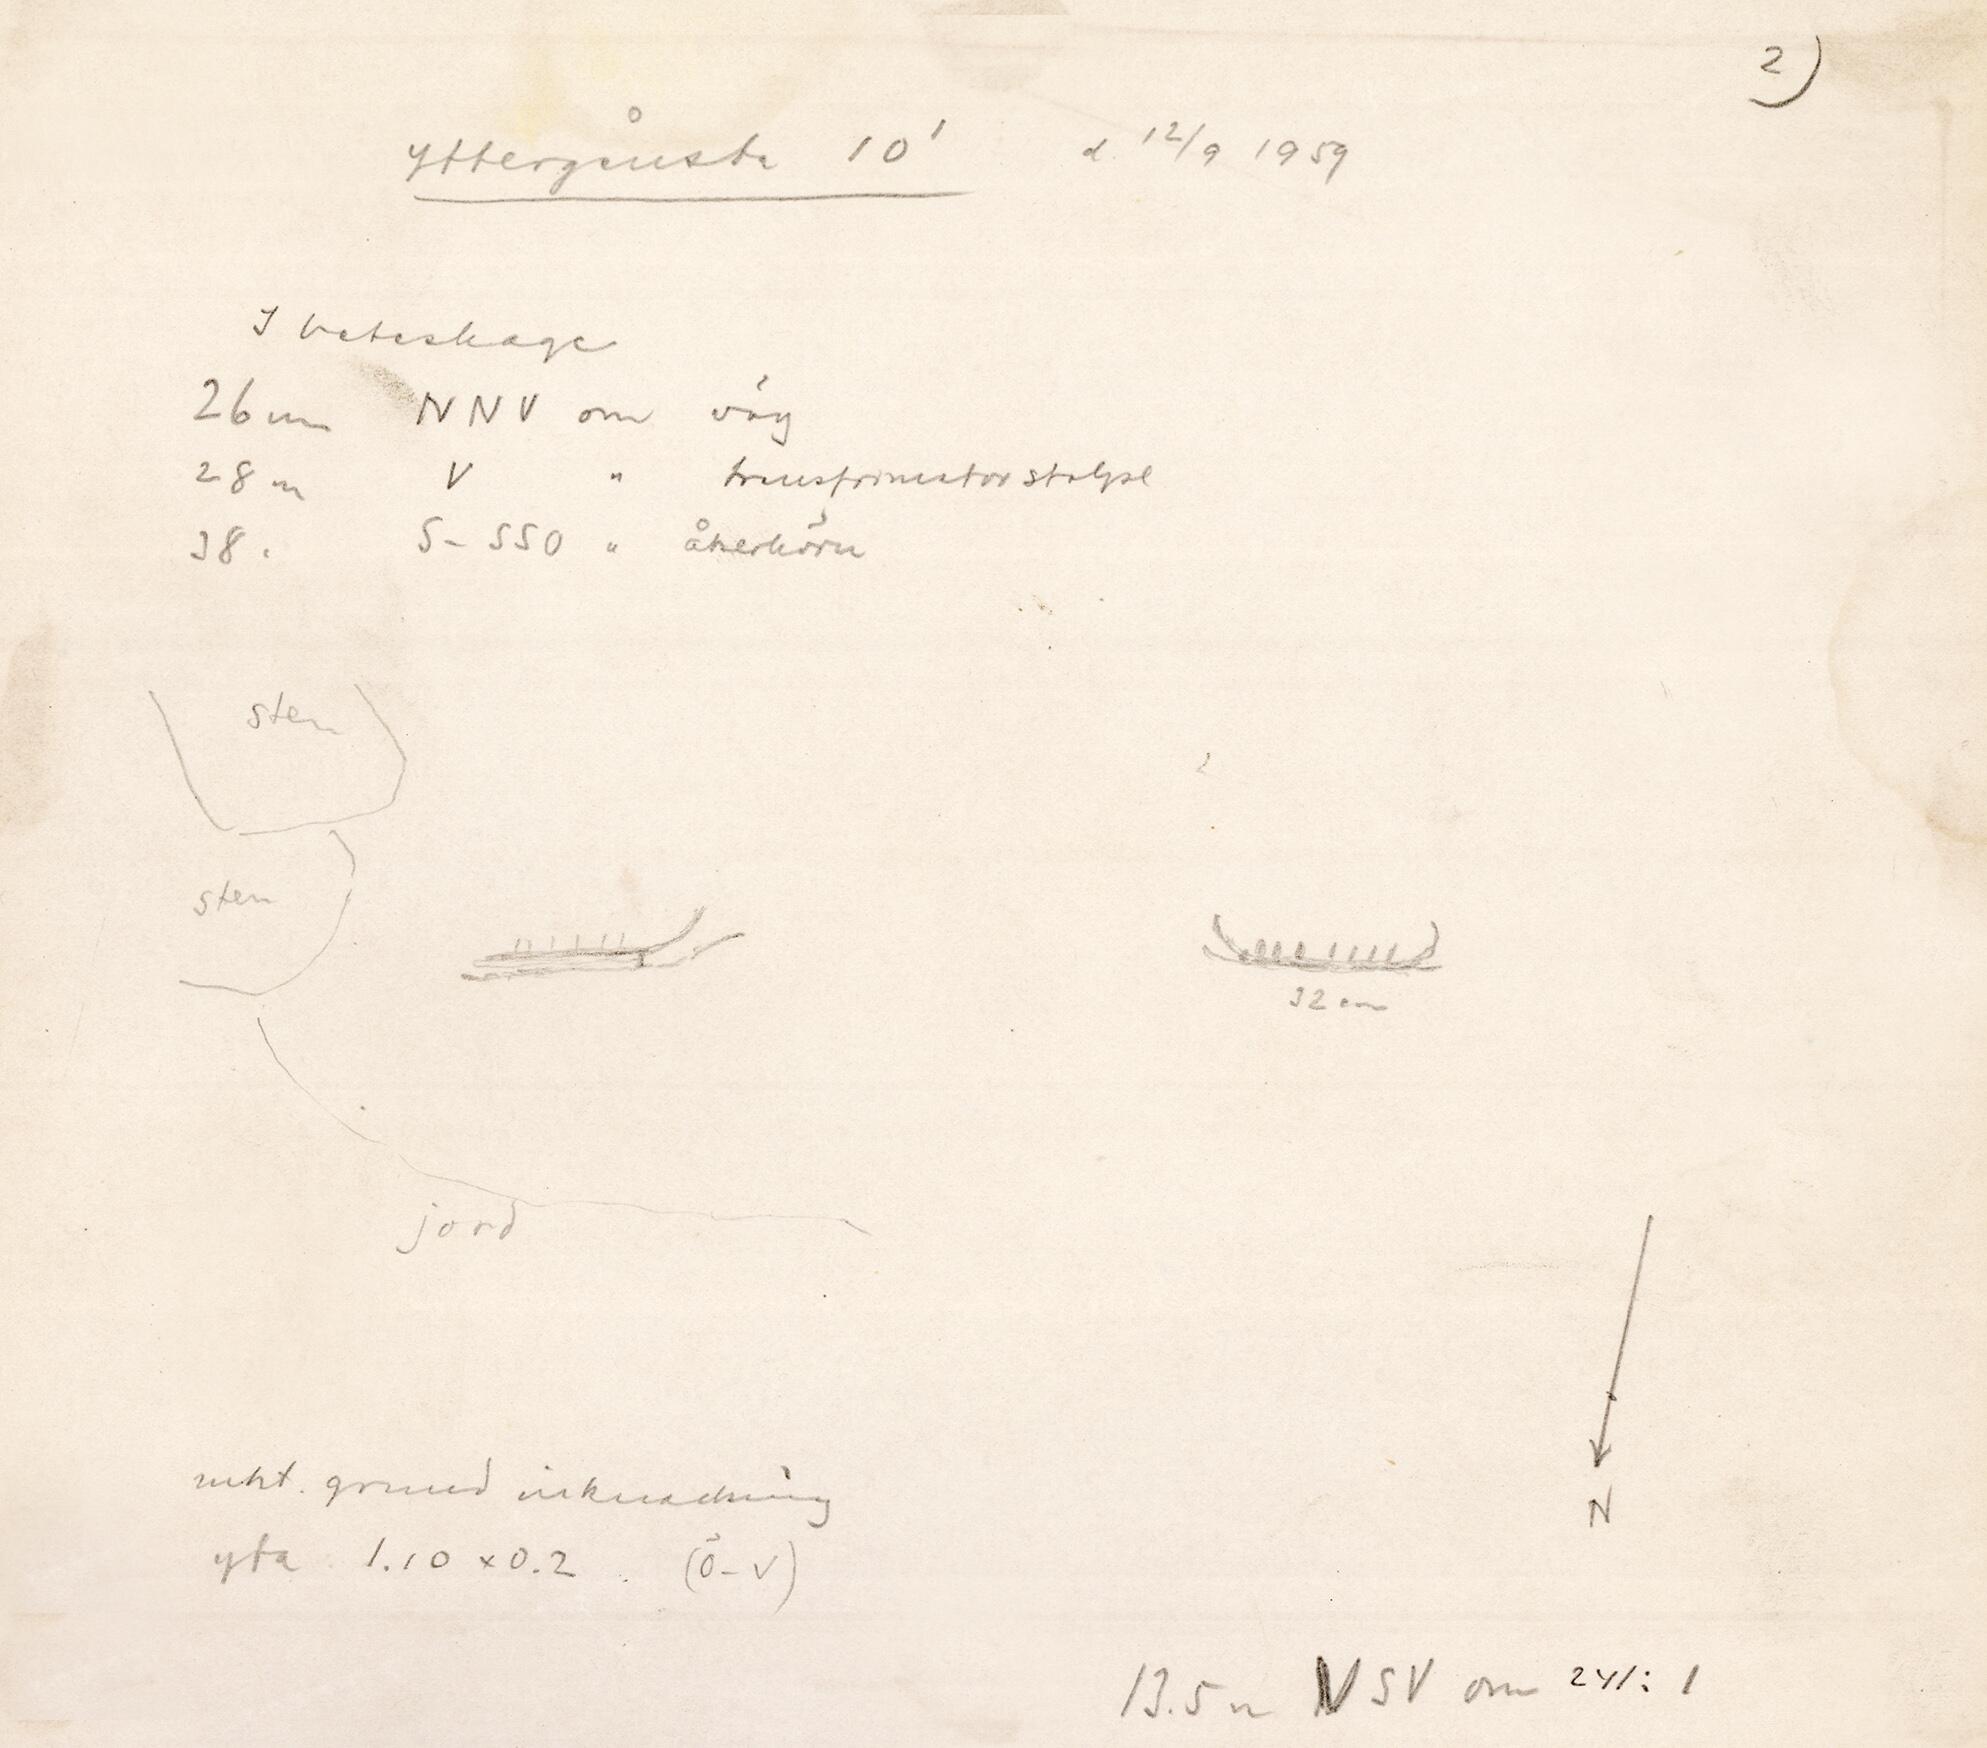 2)
Yttergånsta 10' d. 12/9 1959
I beteshage
26 m NNV om väg
28 m V " transformatorstolpe
38 " S-SSO " åkerhörn
sten
sten
32 cm
jord
N
mkt. grund inknackning
yta 1.10 x 0.2 (Ö-V)
13.5 m VSV om 241:1